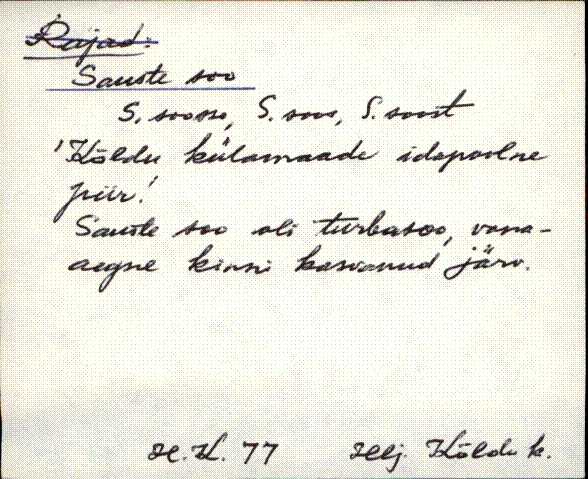 Rajad:
Sauste soo
S. soosse, S. soos, S. soost
'Kõldu külamaade idapoolne
piir!
Sauste soo oli turbasoo, vana-
aegne kinni kasvanud järv.
H.K. 77 Hlj. Kõldu k.